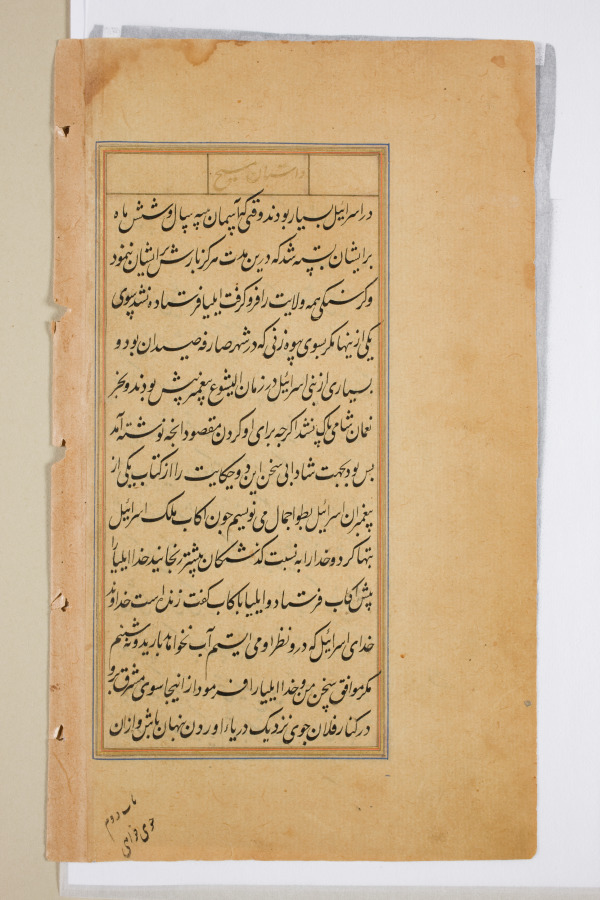 داستان مسیح
در اسرائیل بسیار بودند وقتی که آسمان سه سال و شش ماه
بر ایشان بسته شد که درین مدت هرگز بارش بر ایشان ننمود
و گرسنگی همه ولایت را فرو گرفت ایلیا فرستاده نشد بسوی
یکی از ینها مگر بسوی بیوه زنی که در شهر صارفه صیدان بود و
بسیاری از بنی اسرائیل در زمان الیشوع پیغمبر پیش بودند و بجز
نعمان شامی پاک نشد اگرچه برای او کردن مقصود آنچه نوشته آمد
بس بود بجهت شادابی سخن این دو حکایت را از کتاب یکی از
پیغمبران اسرائیل بطور اجمال می نویسم چون اکاب ملک اسرائیل
بتها کرد و خدا را به نسبت گذشتگان بیشتر رنجانید خدا ایلیا را
پیش اکاب فرستاد و ایلیا با کاب گفت زنده است خداوند
خدای اسرائیل که در و نظر او می ایستم آب نخواهد بارید و نه شبنم
مگر موافق سخن من و خدا ایلیا را فرمود از اینجا سوی مشرق برو
در کنار فلان جوی نزدیک دریاء اوردن نهان باش و از ان
باب دوم
جوی خواهی